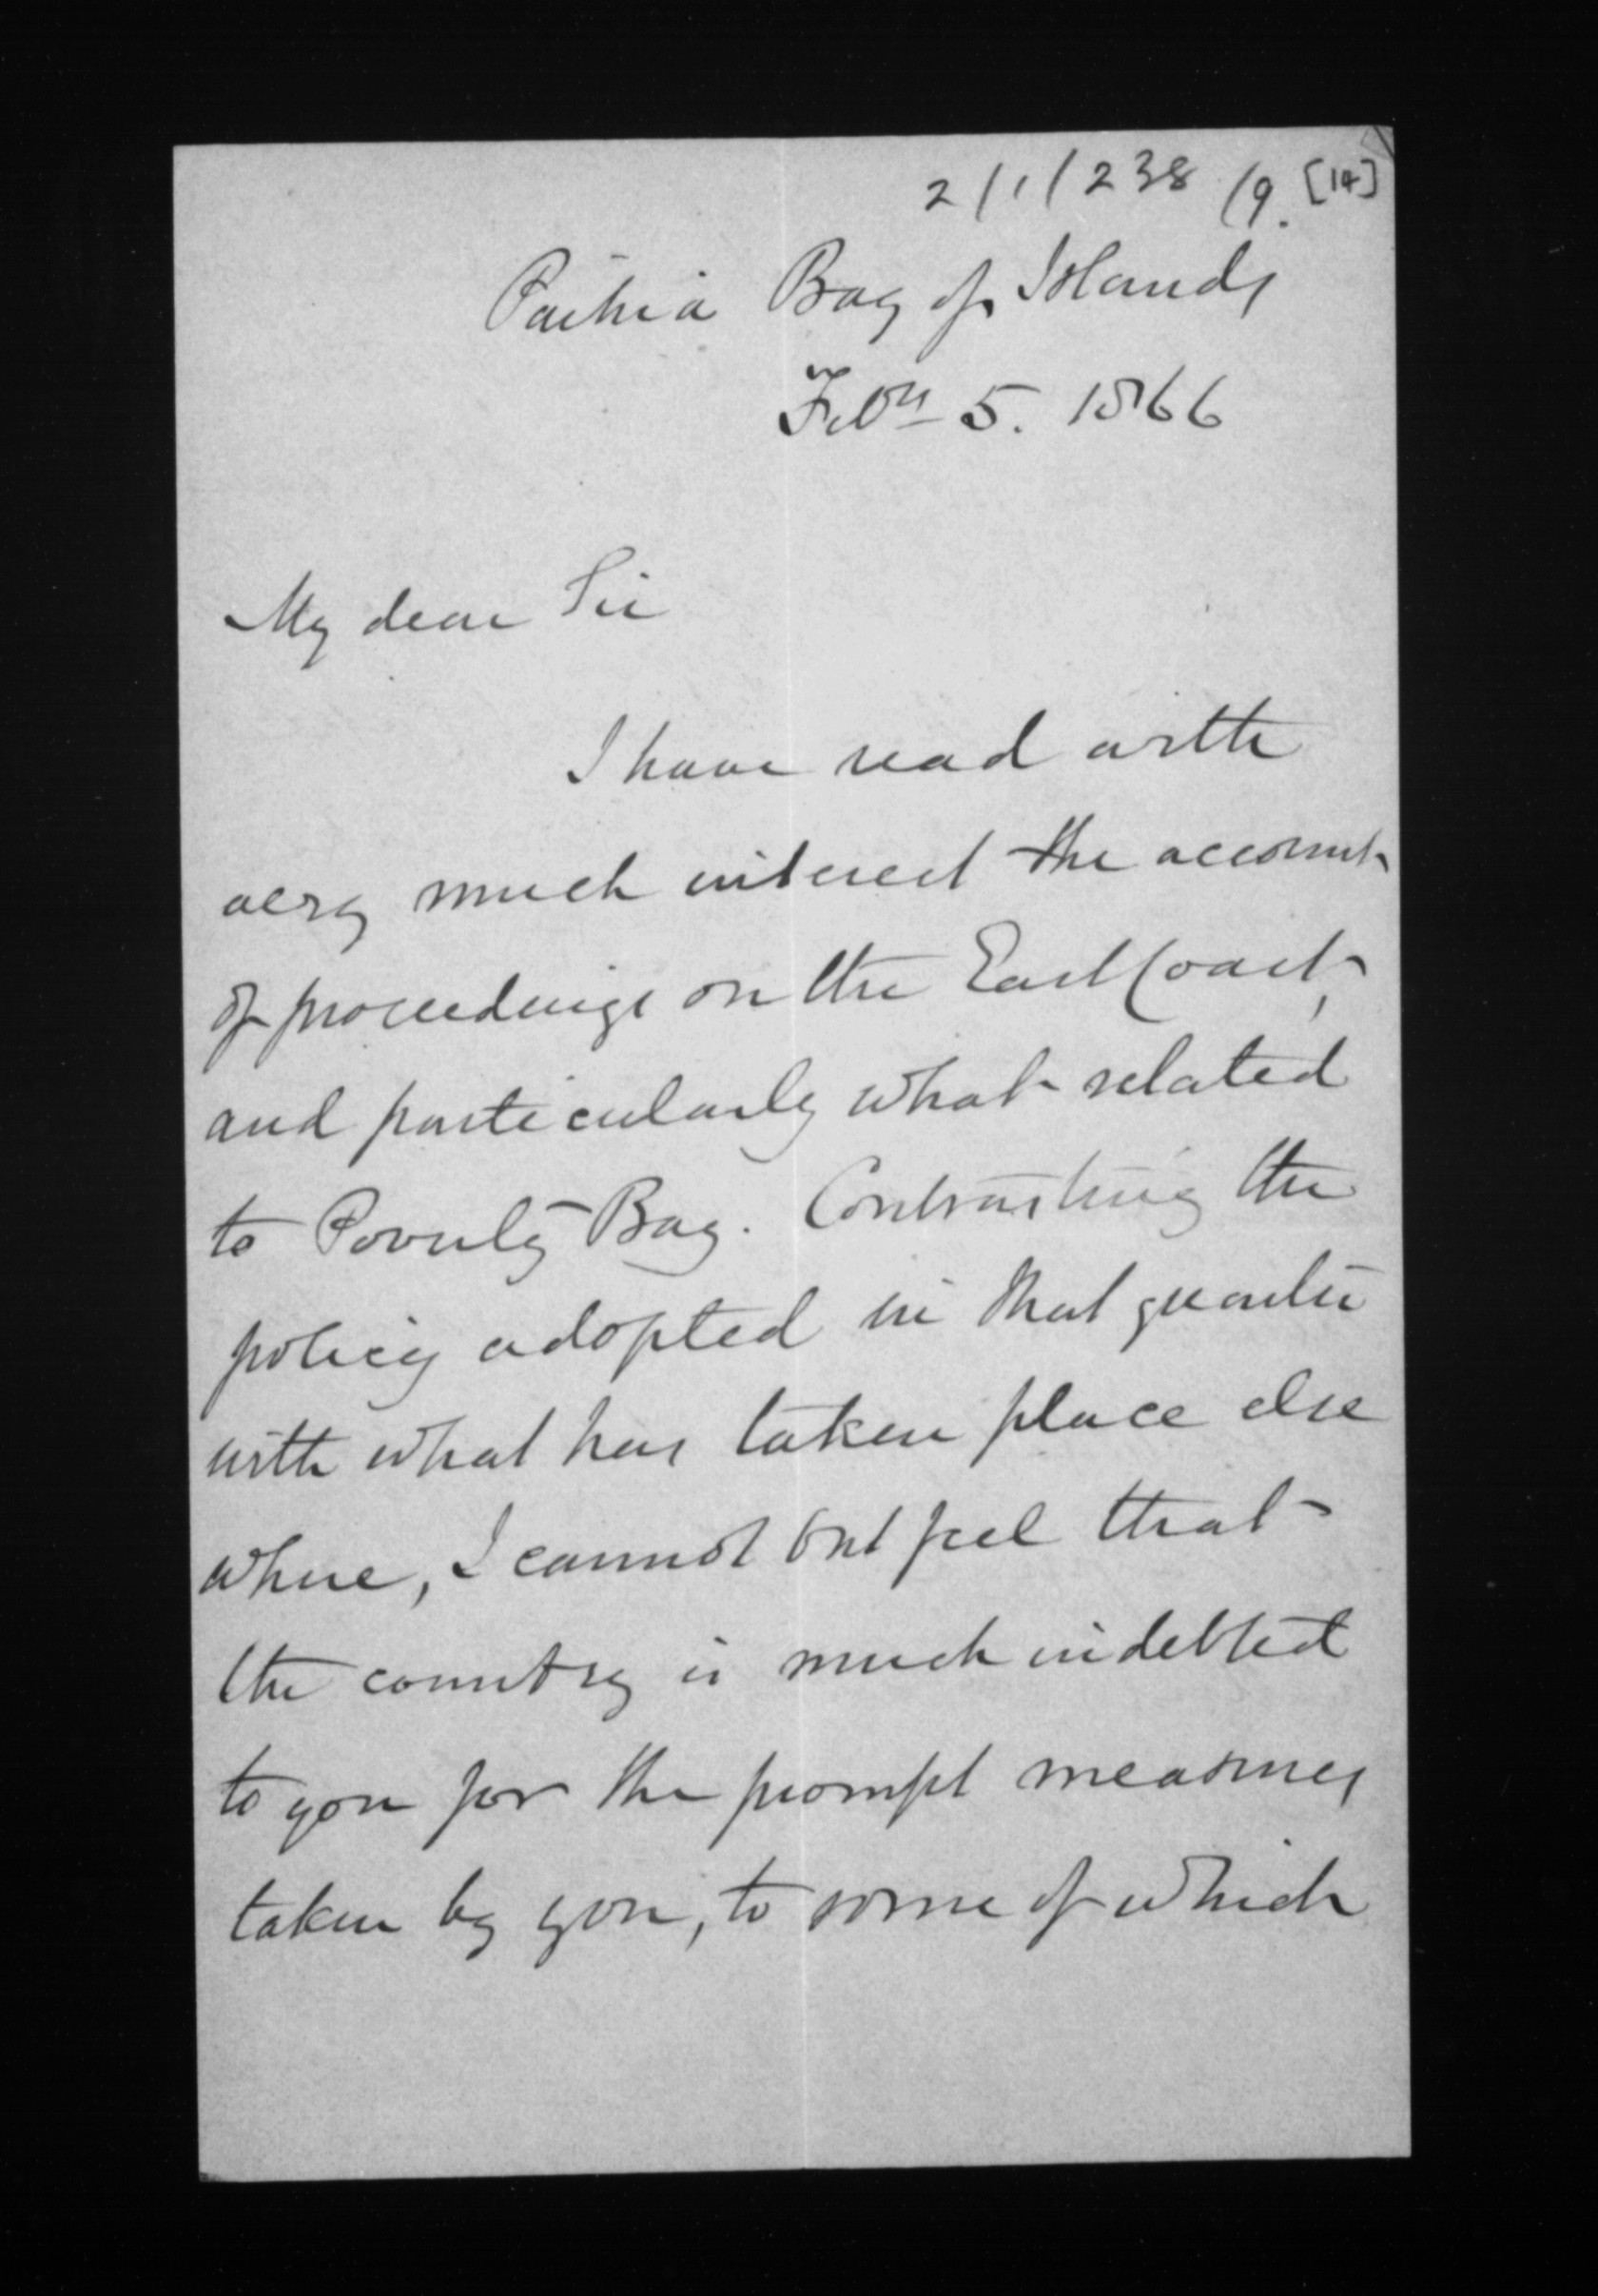 2/1/238 /9. [14]
Paihia Bay of Islands
Feby 5. 1866
My dear Sir
I have read with
very much interest the account
of proceedings on the East Coast,
and particularly what related
to Poverty Bay. Contrasting the
policy adopted in that quarter
with what has taken place else
where, I cannot but feel that
the country is much indebted
to you for the prompt measures
taken by you, to some of which